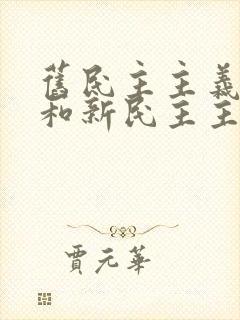 舊民主主義
和新民主主
賈元華